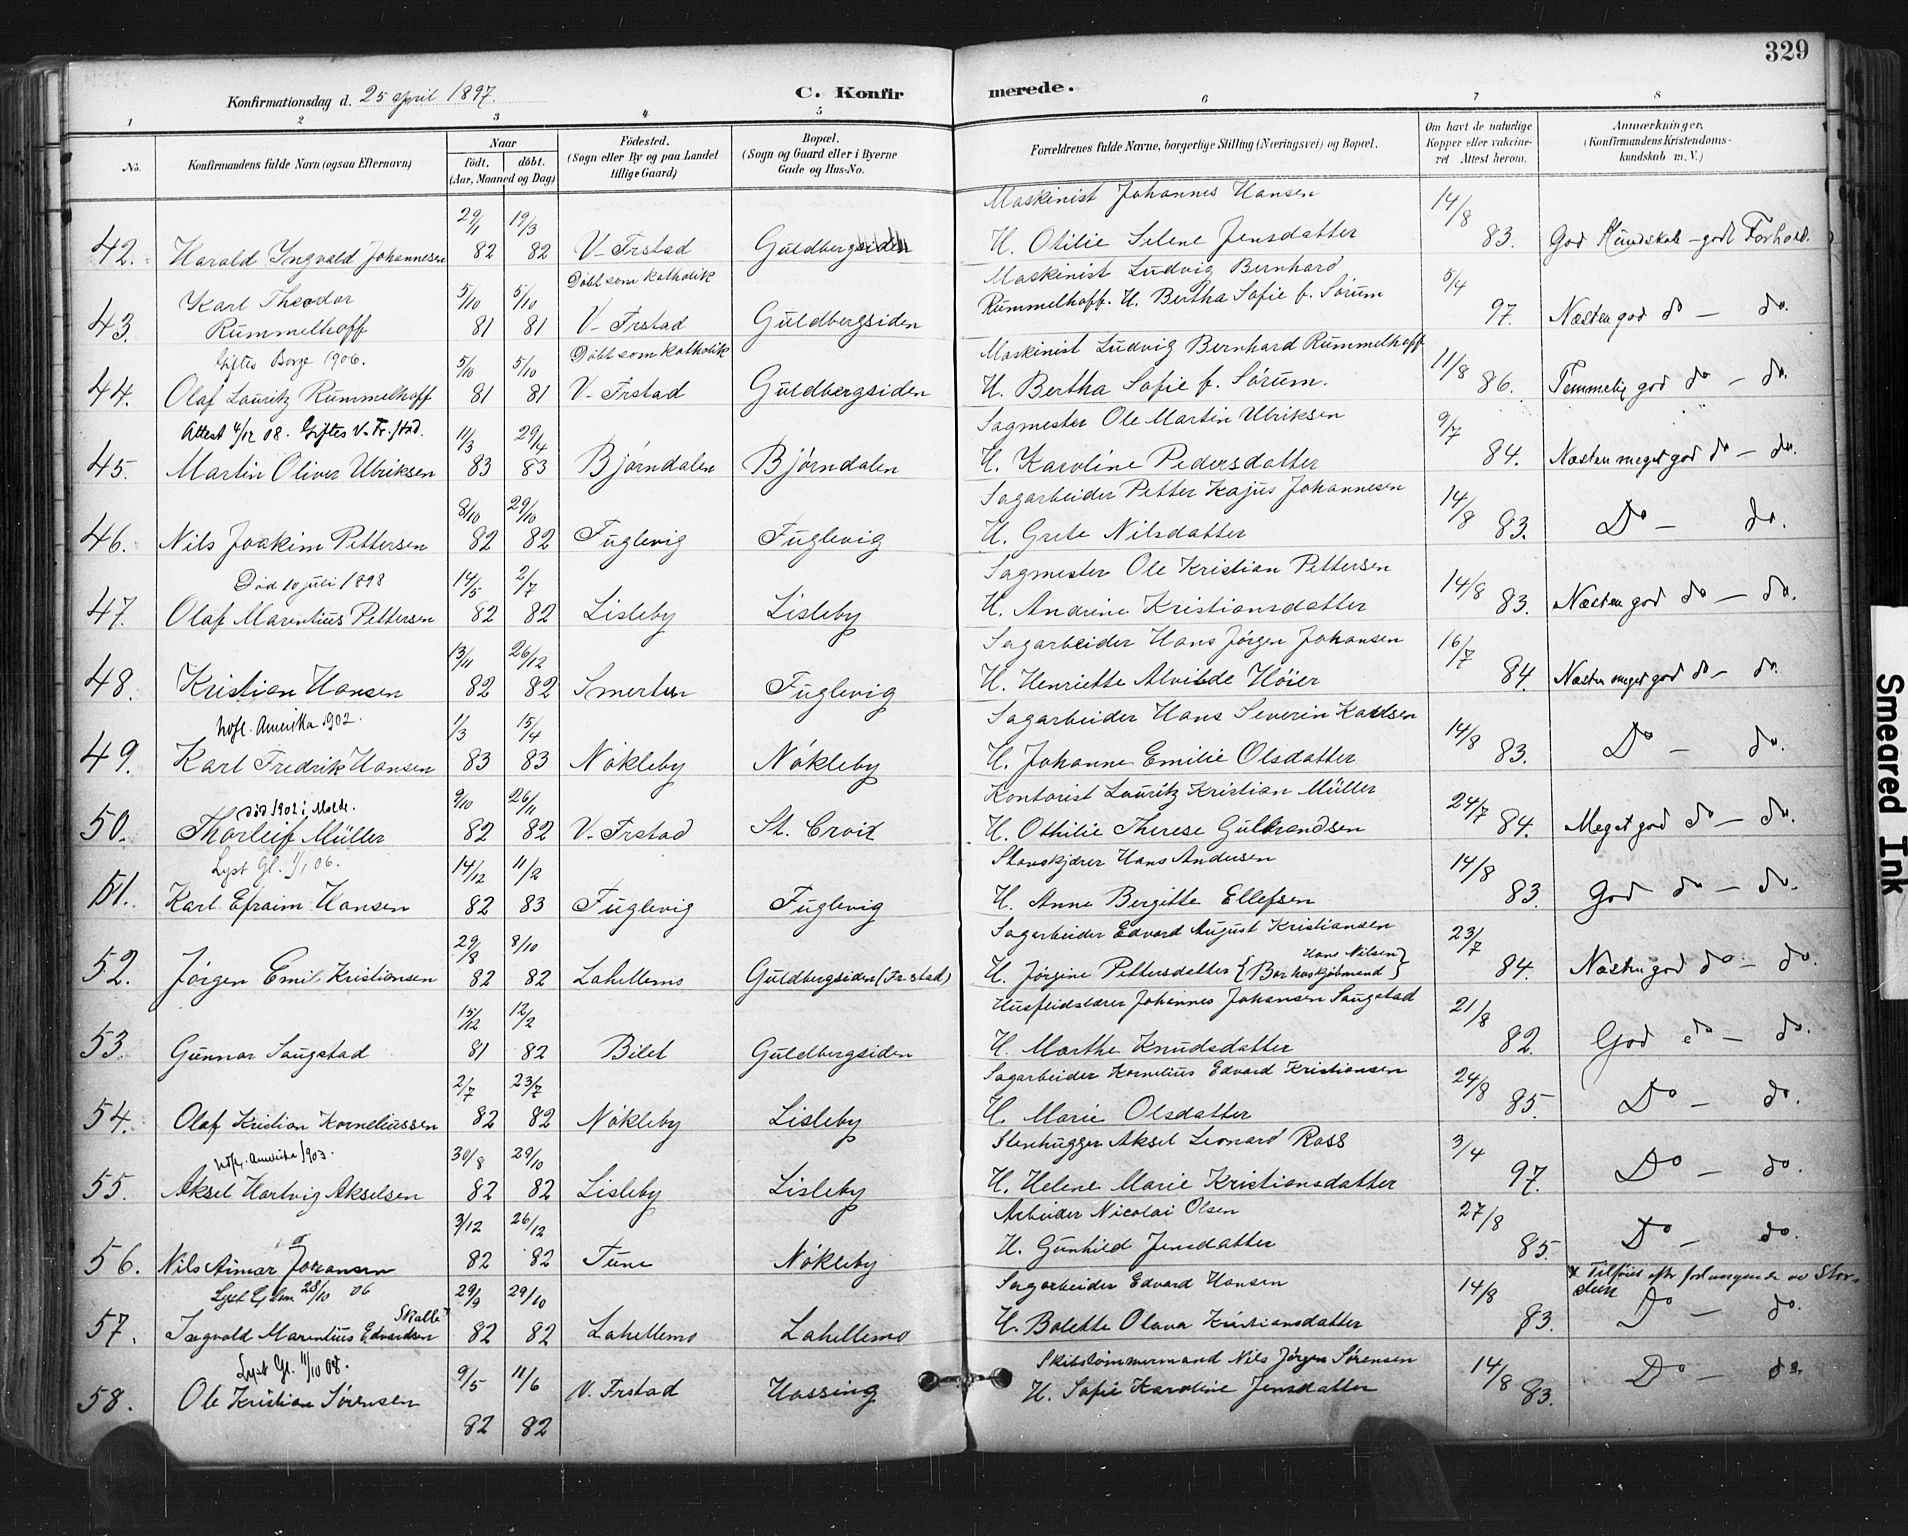 329
Konfirmationsdag d. 25 april 1897.
C. Konfirmerede.
1 2 3 4 5 6 7 8
No.
Konfirmandens fulde Navn (ogsaa Efternavn)
Naar
födt. döbt.
(Aar, Maaned og Dag)
Födested.
(Sogn eller By og paa Landet
tillige Gaard)
Bopæl.
(Sogn og Gaard eller i Byerne
Gade og Hus-No.
Forældrenes fulde Navne, borgerlige Stilling (Næringsvei) og Bopæl.
Om havt de naturlige
Kopper eller vakcine-
ret Attest herom.
Anmærkninger,
(Konfirmandens Kristendoms-
kundskab m. V.)
29/1 19/3 Maskinist Johannes Hansen 14/8
42. Harald Ingvald Johannesen 82 82 V-Frstad Guldbergsiden H. Otilie Selene Jensdatter 83. God Kundskab - godt Forhold.
Karl Theodor 5/10 5/10 Døbt som katholik Maskinist Ludvig Bernhard 5/4
43. Rummelhoff 81 81 V-Frstad Guldbergsiden Rummelhoff. H. Bertha Sofie f. Sørum 97. Næsten god do - do.
Giftes Borge 1906. 5/10 5/10 Døbt som katholik Maskinist Ludvig Bernhard Rummelhoff 11/8
44. Olaf Lauritz Rummelhoff 81 81 V-Frstad Guldbergsiden H. Bertha Sofie f. Sørum. 86. Temmelig god do - do.
Attest 4/12 08. Giftes V. Fr.stad. 11/3 29/4 Sagmester Ole Martin Ulriksen 9/7
45. Martin Oliver Ulriksen 83 83 Bjørndalen Bjørndalen H. Karoline Pedersdatter 84. Næsten meget god do - do.
8/10 29/10 Sagarbeider Petter Kajus Johannesen 14/8
46. Nils Joakim Pettersen 82 82 Fuglevig Fuglevig H. Grete Nilsdatter 83. Do - do.
Død 10 juli 1898 14/5 2/7 Sagmester Ole Kristian Pettersen 14/8
47. Olaf Marentius Pettersen 82 82 Lisleby Lisleby H. Andrine Kristiansdatter 83. Næsten god do - do.
13/11 26/12 Sagarbeider Hans Jørgen Johansen 16/7
48. Kristian Hansen 82 82 Smertu Fuglevig H. Henriette Alvilde Høier 84. Næsten meget god do - do.
Udfl. Amerika 1902. 1/3 15/4 Sagarbeider Hans Severin Karlsen 14/8
49. Karl Fredrik Hansen 83 83 Nøkleby Nøkleby H. Johanne Emilie Olsdatter 83. Do - do.
død 1902 i Molde. 9/10 26/11 Kontorist Lauritz Kristian Müller 24/7
50. Thorleif Müller 82 82 V-Frstad St. Croix H. Othilie Therese Gulbrandsen 84. Meget god do - do.
Lyst Gl. 1/1 06. 14/12 11/2 Stavskjærer Hans Andersen 14/8
51. Karl Efraim Hansen 82 83 Fuglevig Fuglevig H. Anne Bergitte Ellefsen 83. God do - do.
29/8 8/10 Sagarbeider Edvard August Kristiansen 23/7
52. Jørgen Emil Kristiansen 82 82 Lahellemo Guldbergsiden (Fr.stad) H. Jørgine Pettersdatter {Hans Nilsen 84. Næsten god do - do.
15/12 12/2 Husflidslærer Johannes Johansen Saugstad 21/8
53. Gunnar Saugstad 81 82 Bilet Guldbergsiden H. Marthe Knudsdatter 82. God do - do.
2/7 23/7 Sagarbeider Kornelius Edvard Kristiansen 24/8
54. Olaf Kristian Korneliussen 82 82 Nøkleby Lisleby H. Marie Olsdatter 85. Do - do.
Udfl. Amerika 1903. 30/8 29/10 Stenhugger Aksel Leonard Ross 3/4
55. Aksel Hartvig Akselsen 82 82 Lisleby Lisleby H. Helene Marie Kristiansdatter 97. Do - do.
3/12 26/12 Arbeider Nicolai Olsen 27/8
56. Nils Aimar Johansen 82 82 Tune Nøkleby H. Gunhild Jensdatter 85. Do - do.
28/10 06 29/9 29/10 Sagarbeider Edvard Hansen 14/8 x Tilføiet efter
57. Ingvald Marentius Edvardsen Skalle 82 82 Lahellemo Lahellemo H. Bolette Olava Kristiansdatter 83. Do - do.
Lyst Gl. 11/10 08. 9/5 11/6 Skibstømmermand Nils Jørgen Sørensen 14/8
58. Ole Kristian Sørensen 82 82 V. Frstad Hassing H. Sofie Karoline Jensdatter 83. Do - do.
Smeared Ink